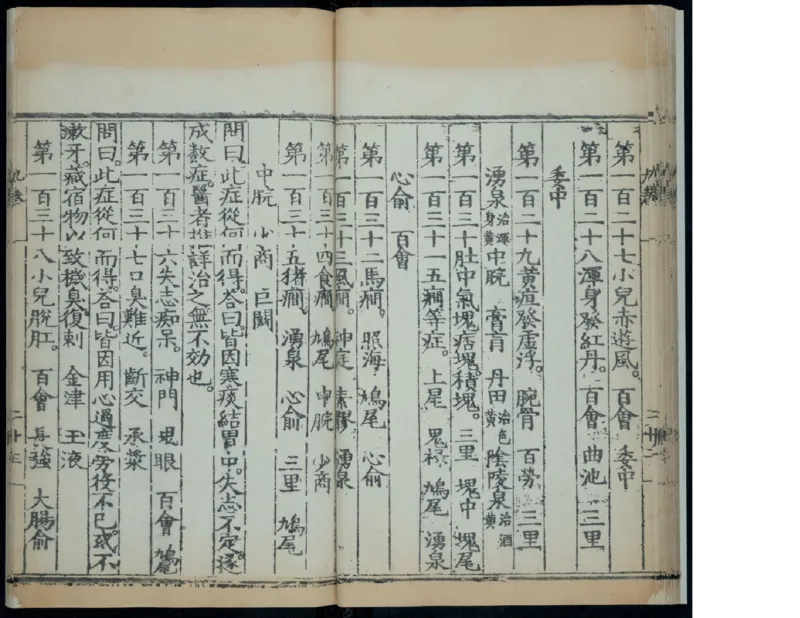 第一百二十七小兒赤遊風。 百會 委中
第一百二十八渾身發紅丹。百會 曲池 三里
委中
第一百二十九黃疸發虛浮。 腕骨 百勞 三里
湧泉治渾身黃中脘 膏肓 丹田治色黃陰陵泉治酒黃
第一百三十肚中氣塊痞塊積塊。 三里 塊中 塊尾
第一百三十一五癎等症。上星 鬼祿 鳩尾 湧泉
心俞 百會
第一百三十二馬癎。 照海 鳩尾 心俞
第一百三十三風癎。神庭 素髎 湧泉
第一百三十四食癎 鳩尾 中脘 少商
第一百三十五猪癎。 湧泉 心俞 三里 鳩尾
中脘 少商 巨闕
問曰此症從何而得。荅曰。皆因寒痰結胃中。失志不定遂
成數症。醫者推詳治之無不効也。
第一百三十六失志痴呆。 神門 鬼眼 百會 鳩尾
第一百三十七口臭難近。 齗交 承漿
問曰。此症從何而得。荅曰皆因用心過度勞役不已。或不
漱牙。藏宿物以致機臭。復刺 金津 玉液
第一百三十八小兒脫肛。 百會 長強 大腸俞
九卷
二十二
九卷
二十三